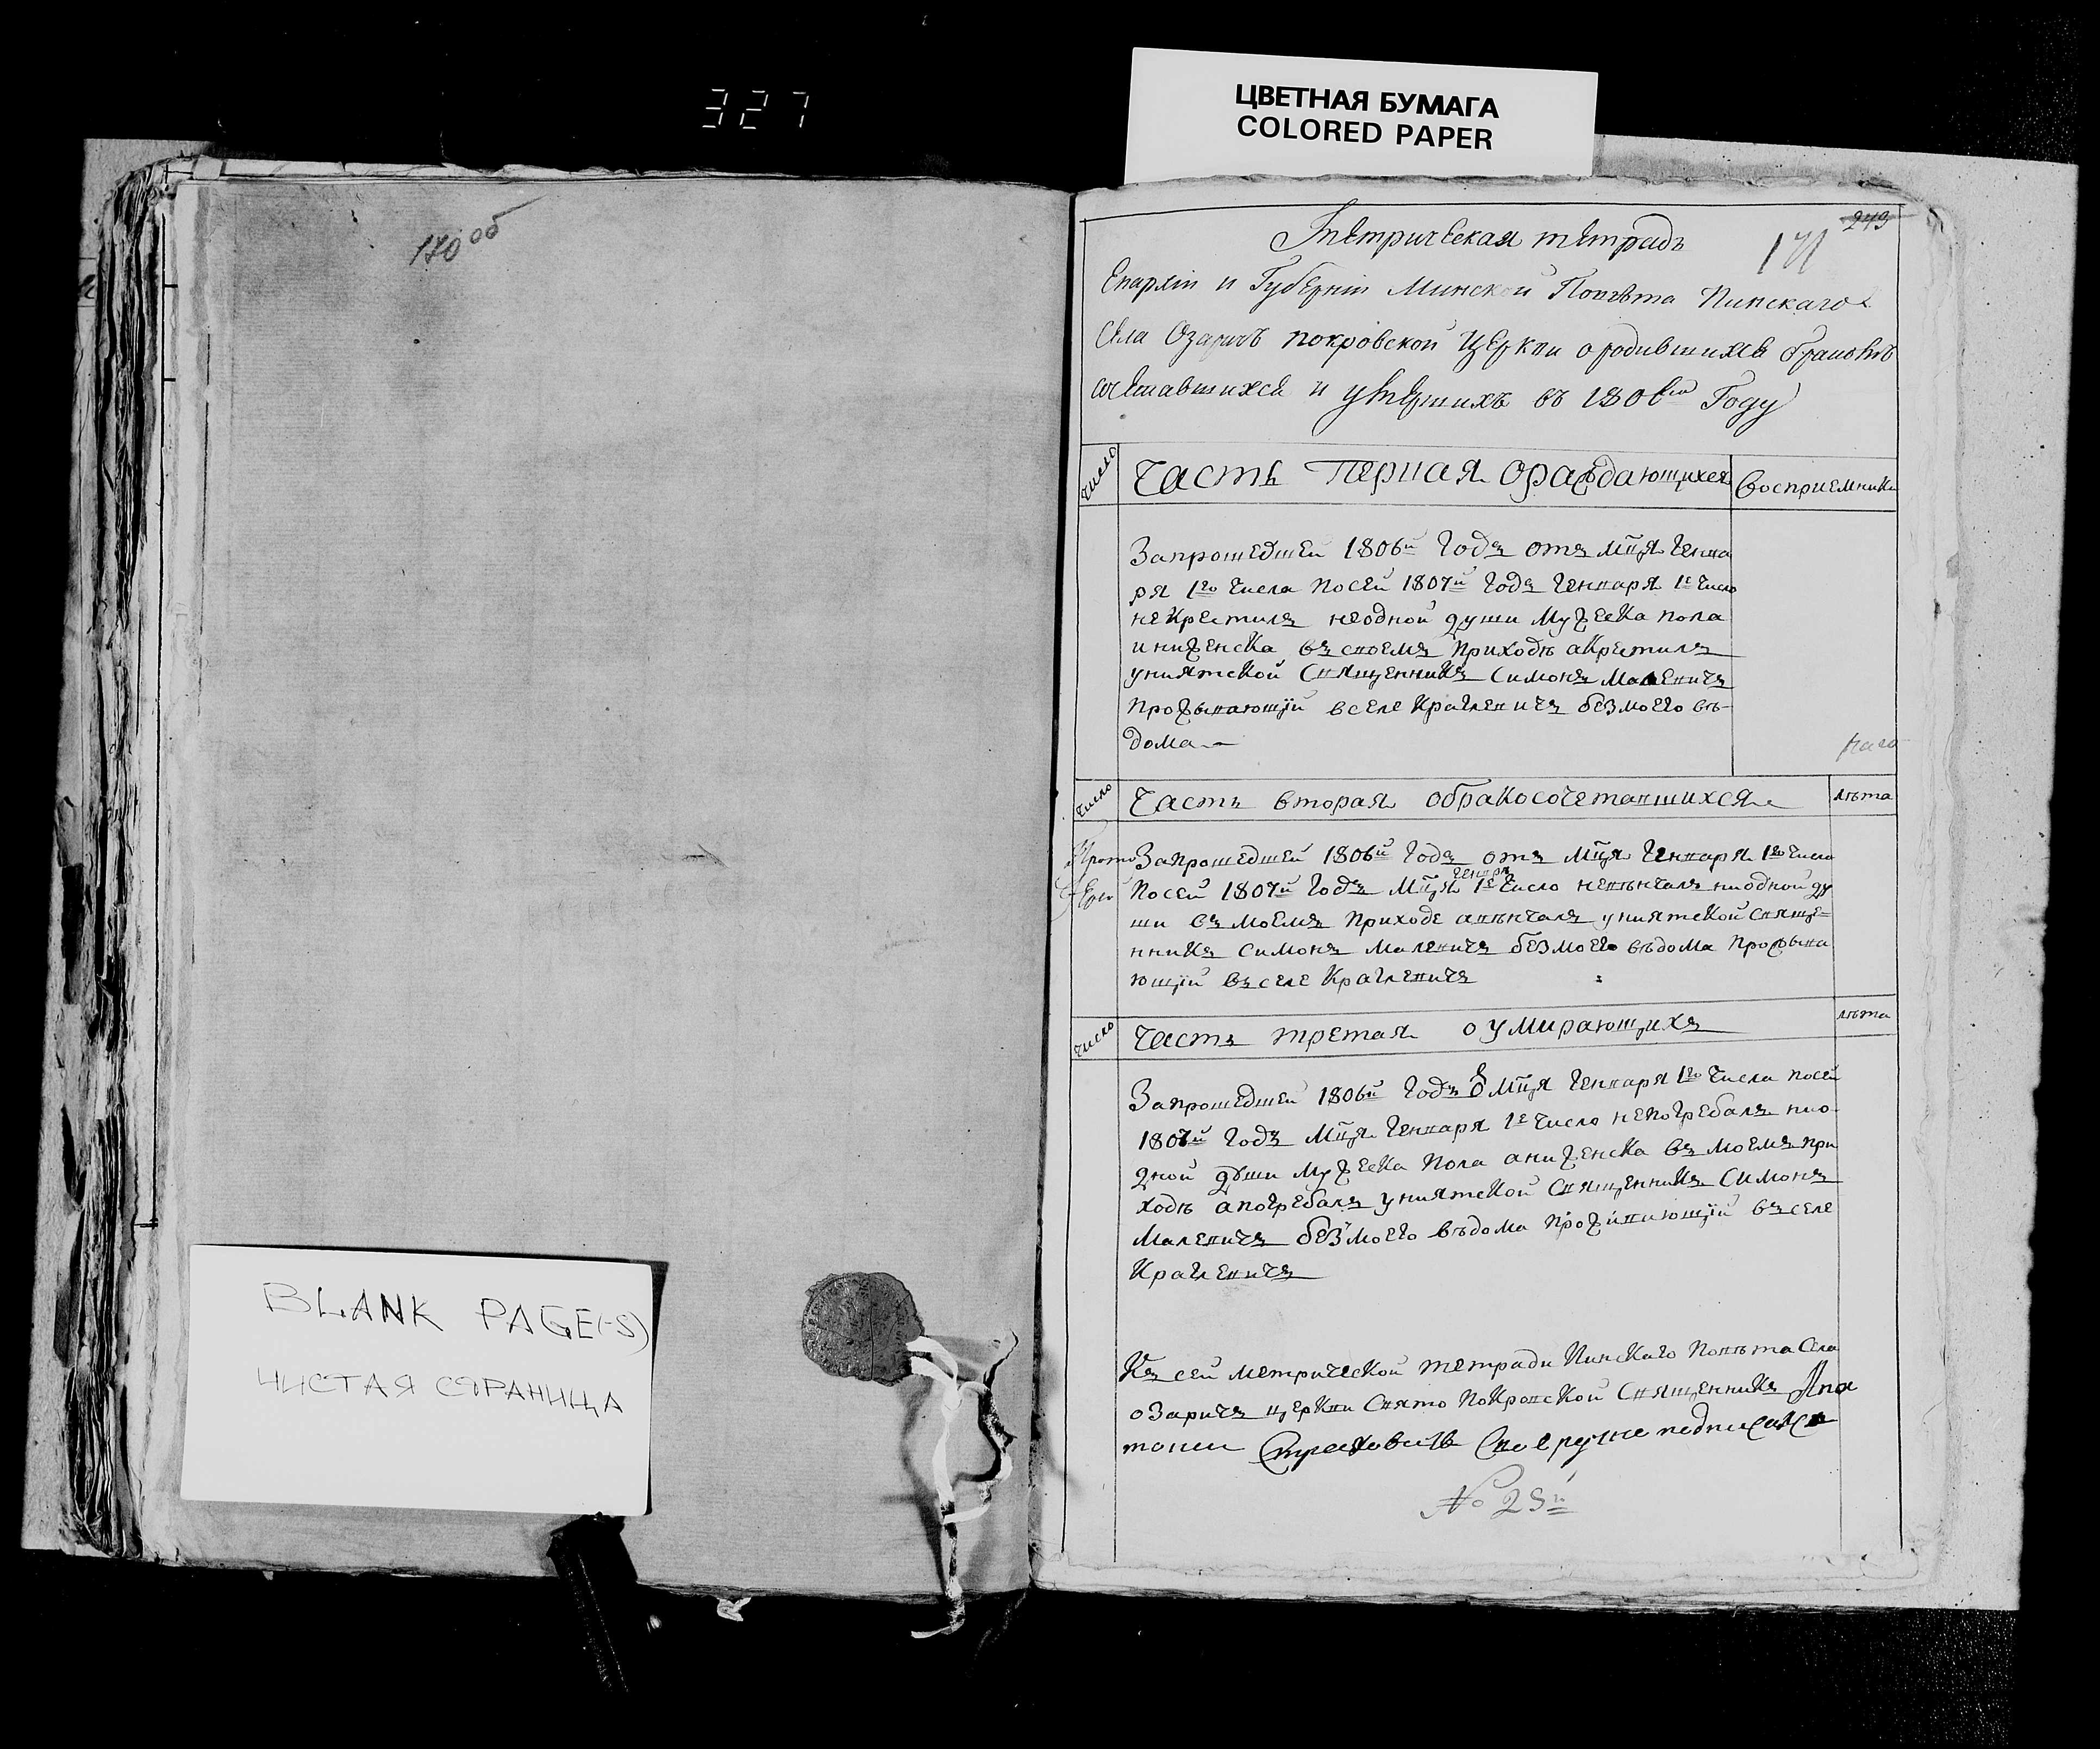 327
ЦВЕТНАЯ БУМАГА
COLORED PAPER
170 об
BLANK PAGE(-S)
ЧИСТАЯ СТРАНИЦА
249
171
Метрическая тетрадь
Епархіи и Губерніи Минской Повѣта Пинскаго
Села Озаричъ покровской Церкви о родившихся бракомъ
сочетавшихся и умершихъ въ 1806м Году
Число
Часть Первая ораждающихся
Восприемники
Запрошедшей 1806й годъ отъ мця генва
ря 1го числа посей 1807й годъ генваря 1е число
не крестилъ неодной души мужеска пола
и ниженска въ своемъ приходѣ а крестилъ
униятской священникъ Симонъ Малевичъ
проживающїй вселе Краглевичъ безмоего вѣ-
дома
Число
Часть вторая обракосочетавшихся
лѣта
Запрошедшей 1806й годъ отъ мця генваря 1го числа
посей 1807й годъ мця генвря 1е число невѣнчалъ ниодной ду
ши въ моемъ приходе авѣнчалъ униятской свяще-
нникъ Симонъ Малевичъ безмоего вѣдома прожива
ющїй въселе Краглевичъ
Число
Часть третая о умирающихъ
лѣта
Запрошедшей 1806й годъ ѿ мця генваря 1го числа посей
1807й годъ мця генваря 1е число непогребалъ нио-
дной души мужеска пола аниженска въ моемъ при
ходѣ апогребалъ униятской священникъ Симонъ
Малевичъ безмоего вѣдома проживающїй въселе
Краглевичъ
Къ сей метрической тетради Пинскаго повѣта села
озаричъ церкви свято покровской священникъ
подписался
№ 29й